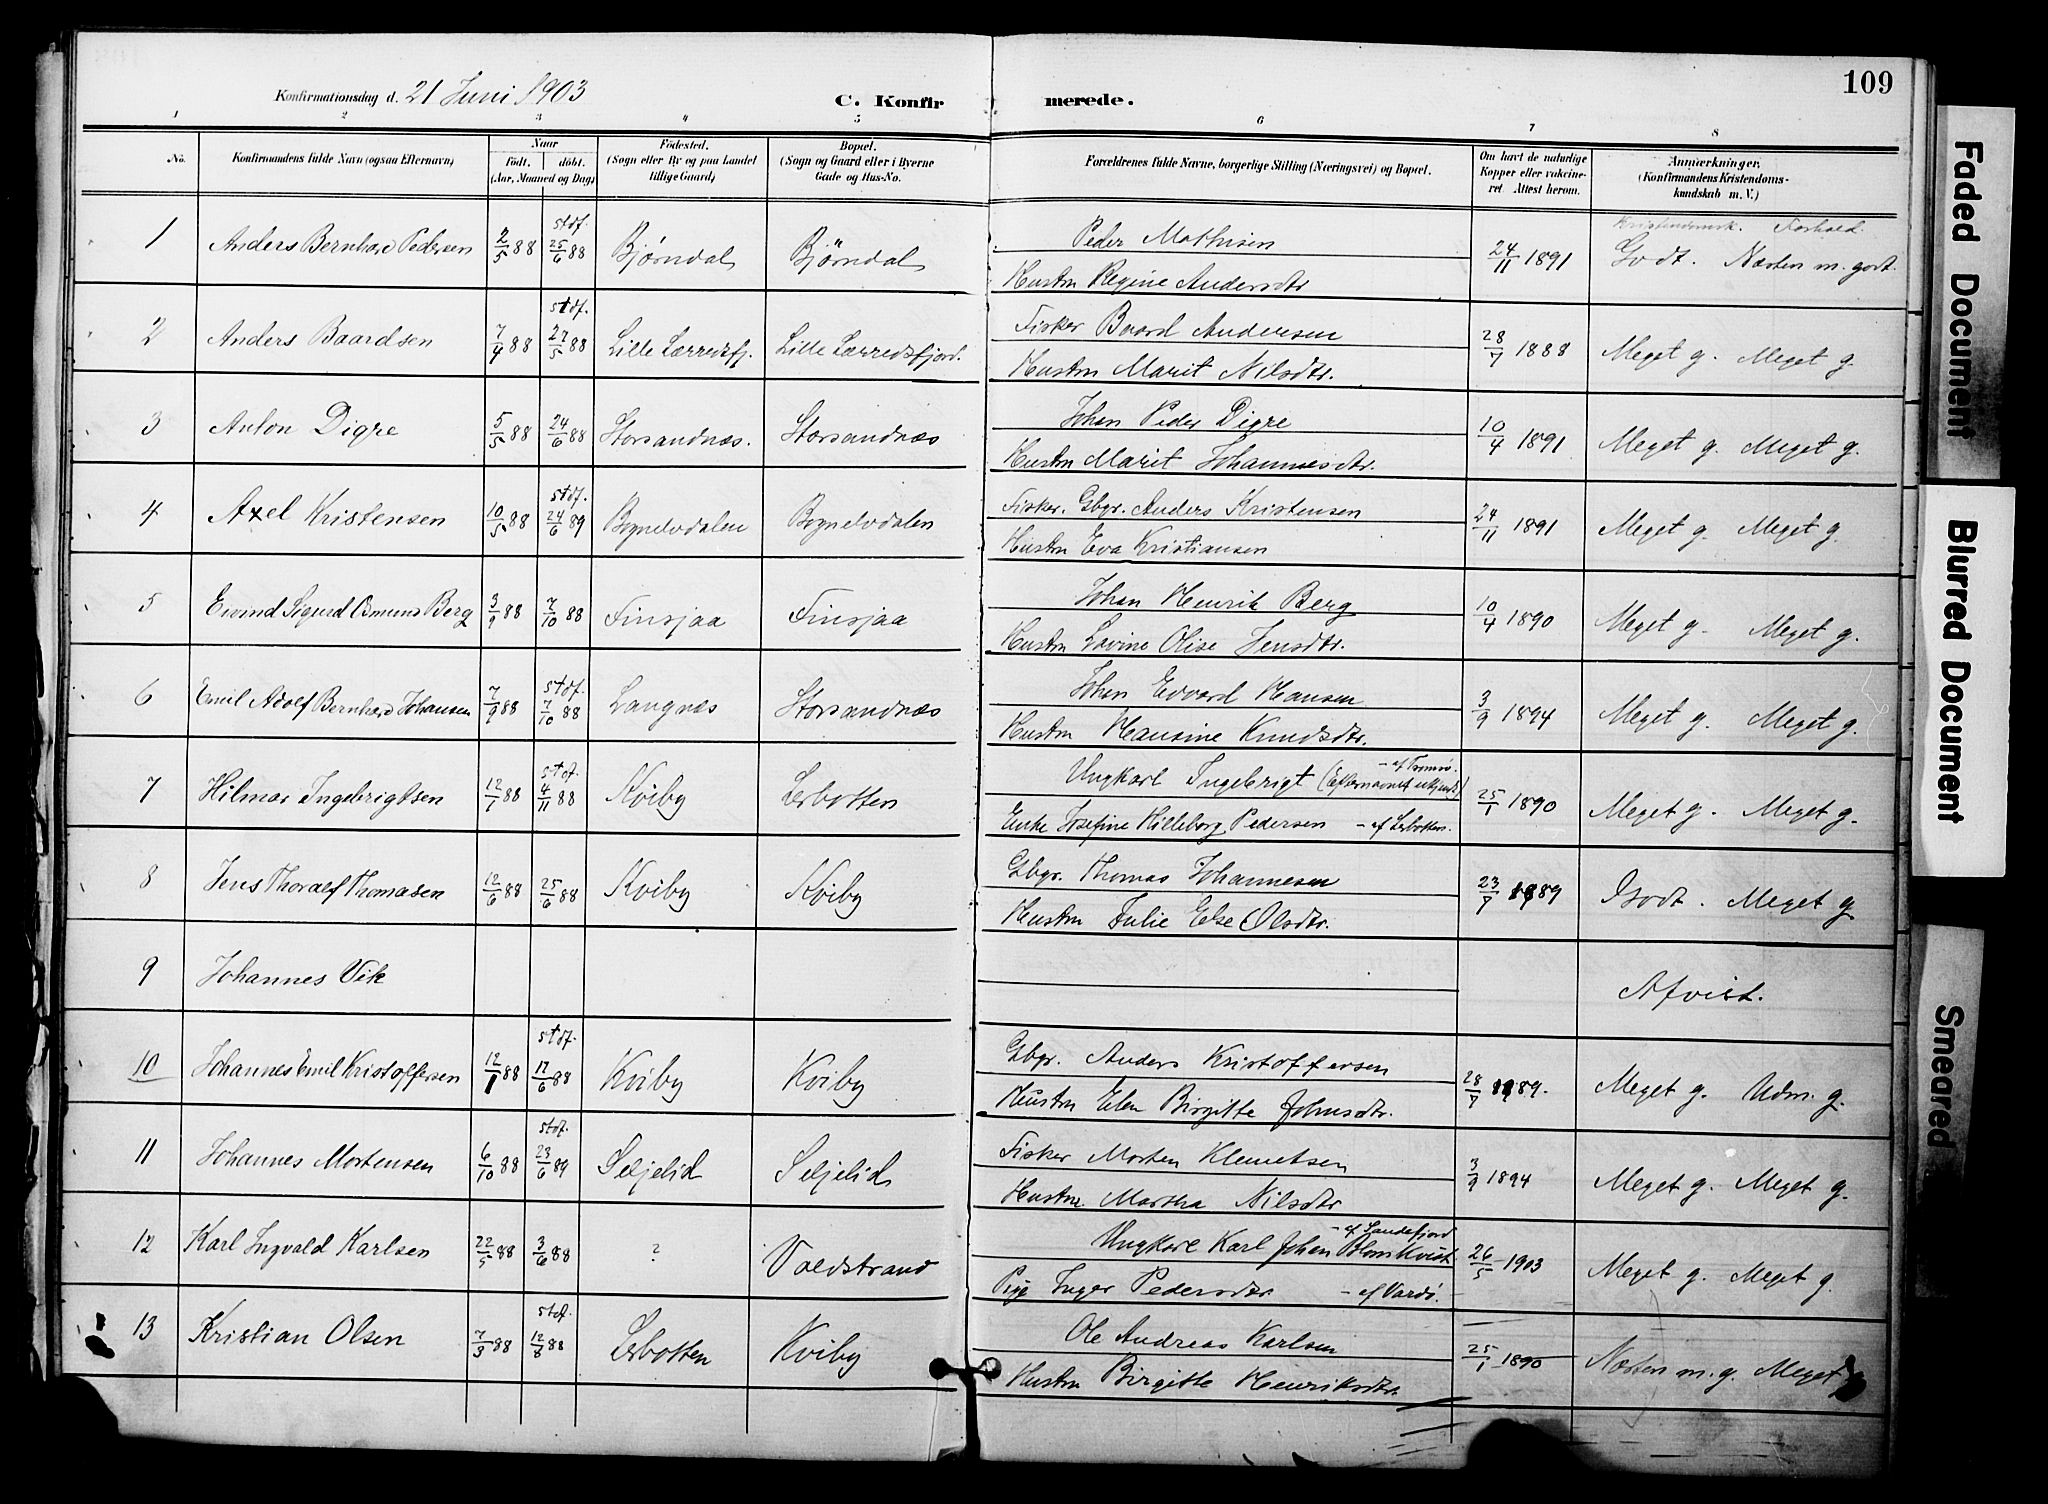 109
Konfirmationsdag d. 21 Juni 1903
C. Konfirmerede.
1 2 3 4 5 6 7 8
No. Konfirmandens fulde Navn (ogsaa Efternavn) Naar født. døbt. (Aar, Maaned og Dag) Fødested. (Sogn eller By og paa Landet tillige Gaard) Bopæl. (Sogn og Gaard eller i Byerne Gade og Hus-No. Forældrenes fulde Navne, borgerlige Stilling (Næringsvei) og Bopæl. Om havt de naturlige Kopper eller vakcineret Attest herom. Anmærkninger. (Konfirmandens Kristendomskundskab m. V.)
Kristendomsk. Forhold.
1 Anders Bernhard Pedersen 2/5 88 stdf. 25/6 88 Bjørndal Bjørndal Peder Mathisen 24/11 1891 Godt. Næsten m. godt.
Hustru Regine Andersdtr
2 Anders Baardsen 7/4 88 stdf. 27/5 88 Lille Lærredsfj. Lille Lærredsfjord. Fisker Baard Andersen 28/7 1888 Meget g. Meget g.
Hustru Marit Nilsdtr.
3 Anton Digre 5/5 88 24/6 88 Storsandnæs. Storsandnæs Johan Peder Digre 10/4 1891 Meget g. Meget g.
Hustru Marit Johannesdtr.
4 Axel Kristensen 10/5 88 stdf. 24/6 89 Bognelvdalen Bognelvdalen Fisker. Gbgr. Anders Kristensen 24/11 1891 Meget g. Meget g.
Hustru Eva Kristiansen
5 Eivind Sigurd Osmund Berg 3/9 88 7/10 88 Finsjaa Finsjaa Johan Henrik Berg 10/4 1890 Meget g. Meget g.
Hustru Lovine Olise Jensdtr.
6 Emil Adolf Bernhard Johansen 7/9 88 stdf. 7/10 88 Langnæs Storsandnæs Johan Edvard Hansen 3/9 1894 Meget g. Meget g.
Hustru Hansine Knudsdtr.
7 Hilmar Ingebrigtsen 12/7 88 stdf. 4/11 88 Kviby Lerbotten Ungkarl Ingebrigt (Efternavnet ukjendt) - af Tromsø. 25/1 1890 Meget g. Meget g.
Enke Josefine Hilleborg Pedersen - af Lerbotten.
8 Jens Thoralf Thomasen 12/6 88 25/6 88 Kviby Kviby Gbgr. Thomas Johannesen 23/7 1889 Godt. Meget g.
Hustru Julie Else Olsdtr.
9 Johannes Vik Afvist.
10 Johannes Emil Kristoffersen 12/1 88 stdf. 17/6 88 Kviby Kviby Gbgr. Anders Kristoffersen 28/7 1889. Meget g. Udm. g.
Hustru Elen Birgitte Johnsdtr.
11 Johannes Mortensen 6/10 88 stdf. 23/6 89 Seljelid Seljelid Fisker Morten Klemetsen 3/9 1894 Meget g. Meget g.
Hustru Martha Nilsdtr
12 Karl Ingvald Karlsen 22/5 88 3/6 88 ? Voldstrand Ungkarl Karl Johan Blomkvist - af Sandefjord 26/5 1903 Meget g. Meget g.
Pige Inger Pedersdtr. - af Vardø.
13 Kristian Olsen 7/3 88 stdf. 12/8 88 Lerbotten Kviby Ole Andreas Karlsen 25/1 1890 Næsten m. g. Meget g
Hustru Birgitte Henriksdtr.
Faded Document
Blurred Document
Smeared